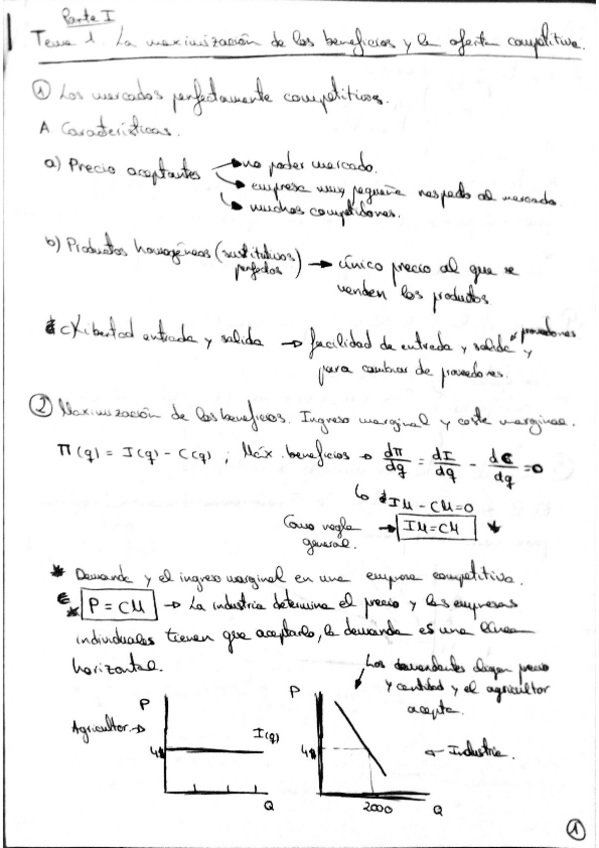 Parte I
Tema 1. La maximización de los beneficios y la oferta competitiva.
① Los mercados perfectamente competitivos.
A Características.
a) Precio aceptantes → no poder mercado.
→ empresa muy pequeña respecto al mercado
→ muchos competidores.
b) Productos homogéneos (sustitutivos perfectos) → único precio al que se
venden los productos
c) Libertad entrada y salida → facilidad de entrada y salida y
para cambiar de proveedores.
② Maximización de los beneficios. Ingreso marginal y coste marginal.
π(q) = I(q) - C(q) ; Máx. beneficios → dπ/dq = dI/dq - dC/dq = 0
↳ IM - CM = 0
Como regla general. → IM = CM *
* Demanda y el ingreso marginal en una empresa competitiva.
* P = CM → La industria determina el precio y las empresas
individuales tienen que aceptarlo, la demanda es una línea
horizontal.
Los demandantes eligen precio
y cantidad y el agricultor
acepta.
P
Agricultor →
I(q)
4$
Q
P
4$
← Industria.
2000
Q
1